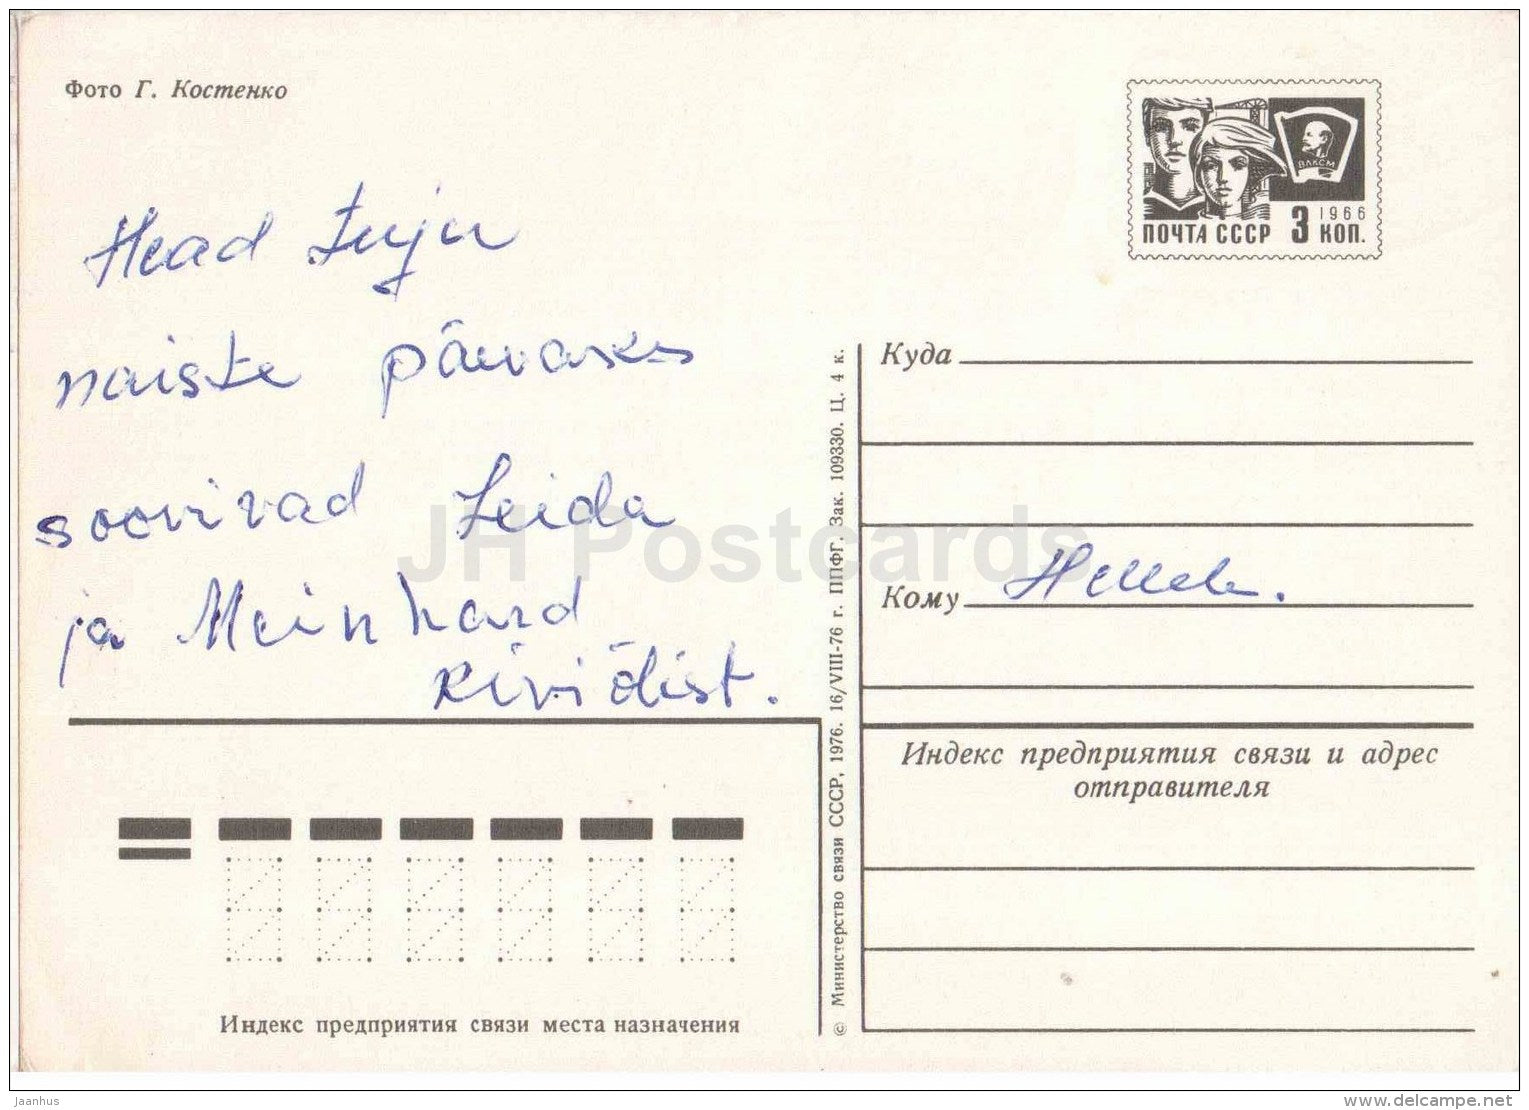 Фото Г. Костенко
ПОЧТА СССР 3 1966 КОП.
ВЛКСМ
Head tuju
naiste päevaks
soovivad Leida
ja Meinhard
Kiviõlist.
Куда
Кому
Индекс предприятия связи и адрес
отправителя
© Министерство связи СССР, 1976. 16/VIII-76 г. ППФГ. Зак. 109330. Ц. 4 к.
Индекс предприятия связи места назначения
JH Postcards
Jaanhus
www.delcampe.net